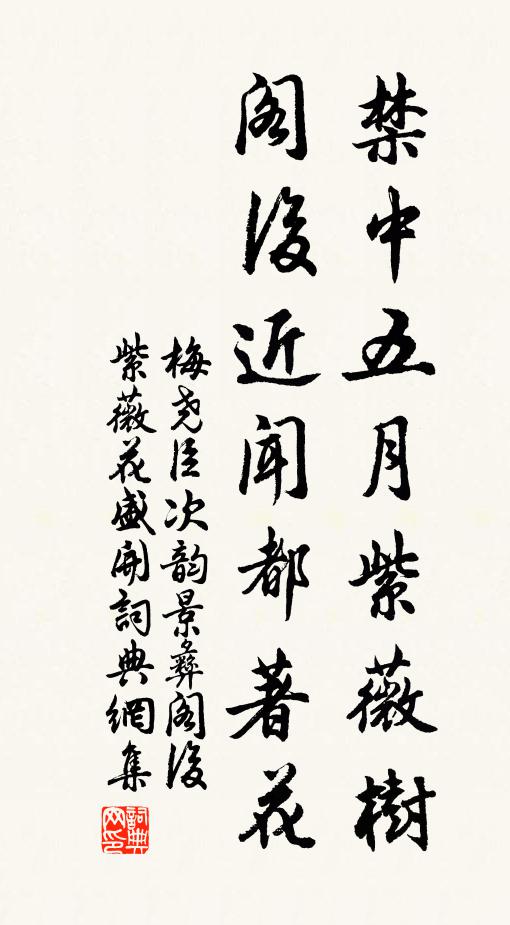 禁中五月紫薇樹
閣後近聞都著花
梅堯臣次韵景彝閣後
紫薇花盛開詞典網集
詞典網印